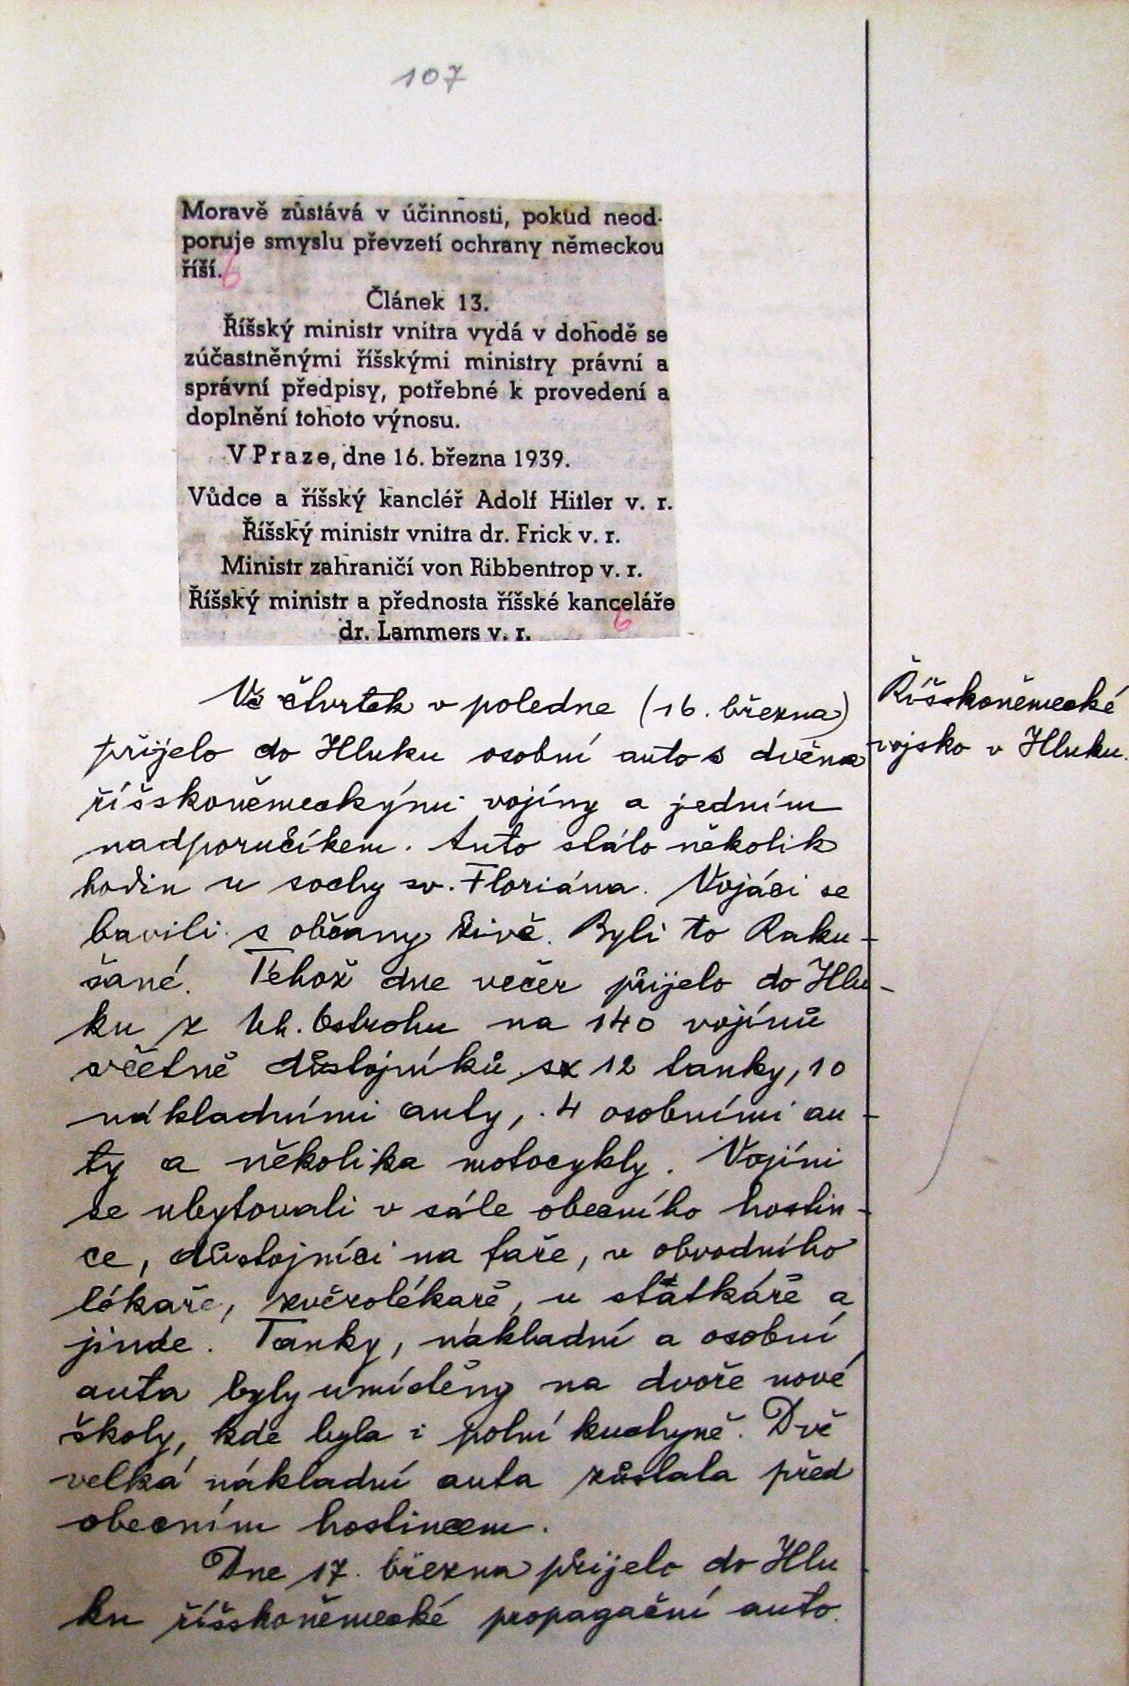 107
Moravě zůstává v účinnosti, pokud neod-
poruje smyslu převzetí ochrany německou
říší.
6
Článek 13.
Říšský ministr vnitra vydá v dohodě se
zúčastněnými říšskými ministry právní a
správní předpisy, potřebné k provedení a
doplnění tohoto výnosu.
V Praze, dne 16. března 1939.
Vůdce a říšský kancléř Adolf Hitler v. r.
Říšský ministr vnitra dr. Frick v. r.
Ministr zahraničí von Ribbentrop v. r.
Říšský ministr a přednosta říšské kanceláře
6
dr. Lammers v. r.
Ve čtvrtek v poledne (16. března)
Říšskoněmecké
vojsko v Hluku.
přijelo do Hluku osobní auto s dvěma
říšskoněmeckými vojíny a jedním
nadporučíkem. Auto stálo několik
hodin u sochy sv. Floriána. Vojáci se
bavili s občany živě. Byli to Raku-
šané. Téhož dne večer přijelo do Hlu-
ku z Uh. Ostrohu na 140 vojínů
včetně důstojníků s 12 tanky, 10
nákladními auty, 4 osobními au-
ty a několika motocykly. Vojíni
se ubytovali v sále obecního hostin-
ce, důstojníci na faře, u obvodního
lékaře, zvěrolékaře, u statkáře a
jinde. Tanky, nákladní a osobní
auta byly umístěny na dvoře nové
školy, kde byla i polní kuchyně. Dvě
velká nákladní auta zůstala před
obecním hostincem.
Dne 17. března přijelo do Hlu
ku říšskoněmecké propagační auto.